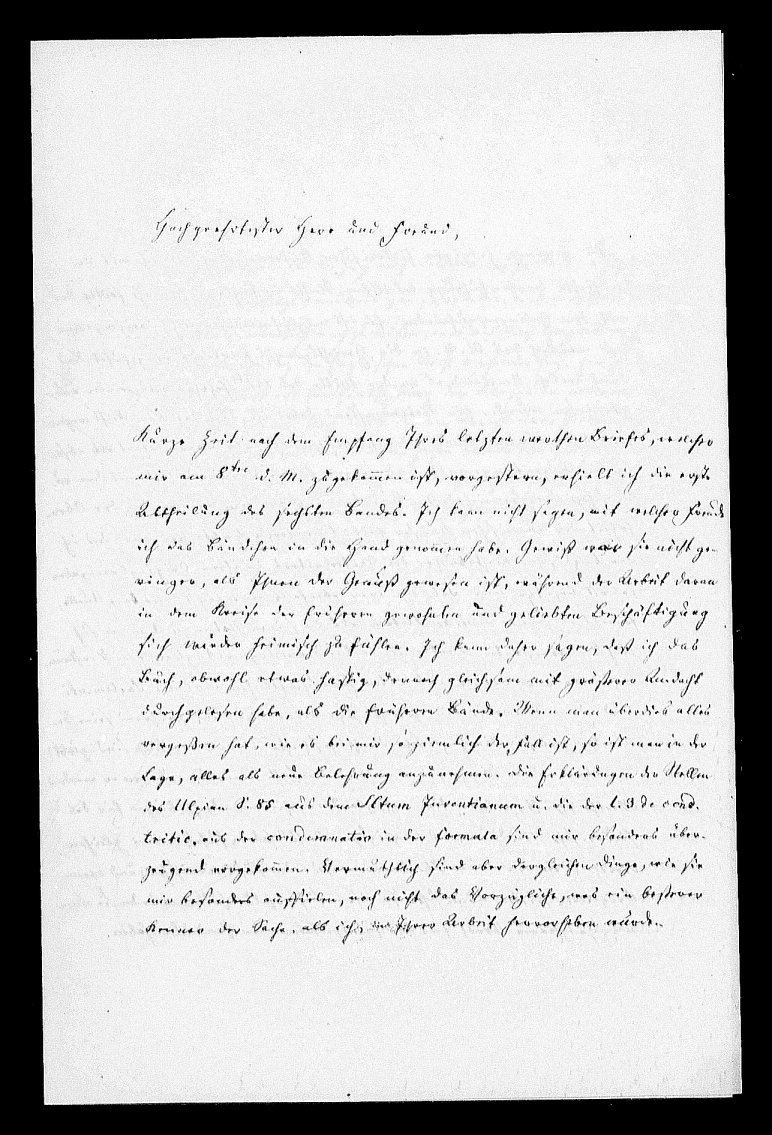 Hochgeehrtester Herr und Freund,
Kurze Zeit nach dem Empfang Ihres letzten werthen Briefes, welcher
mir am 8ten d. M. zugekommen ist, vorgestern, erhielt ich die erste
Abtheilung des sechsten Bandes. Ich kann nicht sagen, mit welcher Freude
ich das Bändchen in die Hand genommen habe. Gewiß war sie nicht ge-
ringer, als Ihnen der Genuß gewesen ist, während der Arbeit daran
in dem Kreise der früheren gewohnten und geliebten Beschäftigung
sich wieder heimisch zu fühlen. Ich kann daher sagen, daß ich das
Buch, obwohl etwas hastig, dennoch gleichsam mit größerer Andacht
durchgelesen habe, als die früheren Bände. Wenn man überdies alles
vergeßen hat, wie es bei mir so ziemlich der Fall ist, so ist man in der
Lage, alles als neue Belehrung anzunehmen. Die Erklärungen der Stellen
des Ulpian S. 85 aus dem SCtum Juventianum u. die der l. 3 de cond.
tritic. aus der condemnatio in der formula sind mir besonders über-
zeugend vorgekommen. Vermuthlich sind aber dergleichen Dinge, wie sie
mir besonders auffielen, noch nicht das Vorzügliche, was ein beßerer
Kenner der Sache, als ich, in Ihrer Arbeit hervorheben würde.